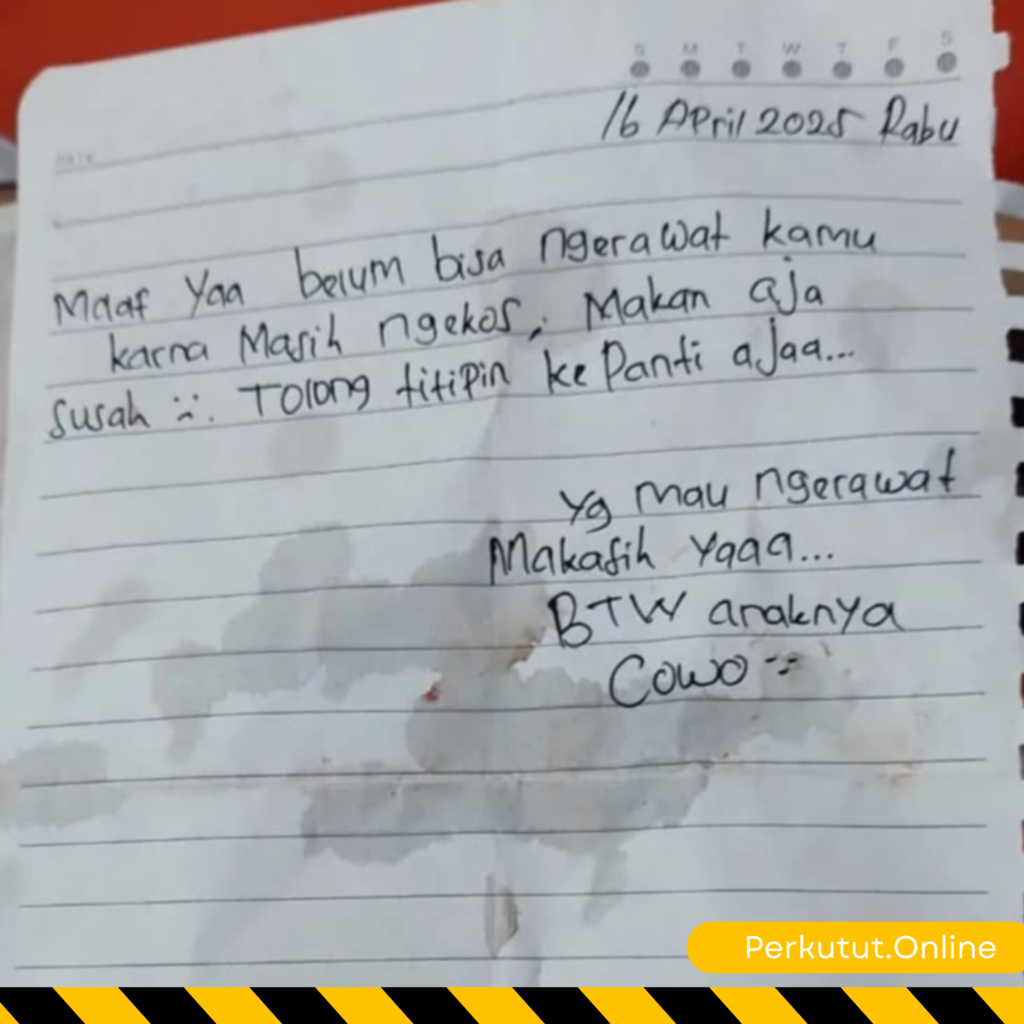 S M T W T F S
DATE
16 April 2025 Rabu
Maaf Yaa belum bisa ngerawat kamu
karna Masih ngekos, Makan aja
susah :(. Tolong titipin ke Panti ajaa...
Yg mau ngerawat
Makasih Yaaa...
BTW anaknya
Cowo
Perkutut.Online